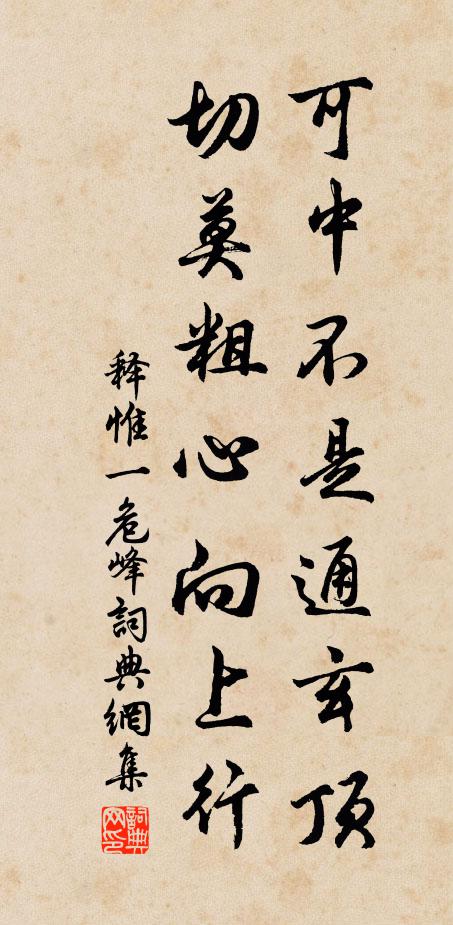 可中不是通玄顶
切莫粗心向上行
释惟一危峰詞典網集
詞典网印